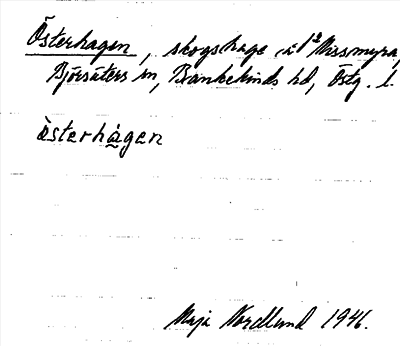 Österhagen, skogshage å 1/2 Missmyra,
Björsäters sn, Bankekinds hd, Östg. l.
östərhàgən
Maja Nordlund 1946.